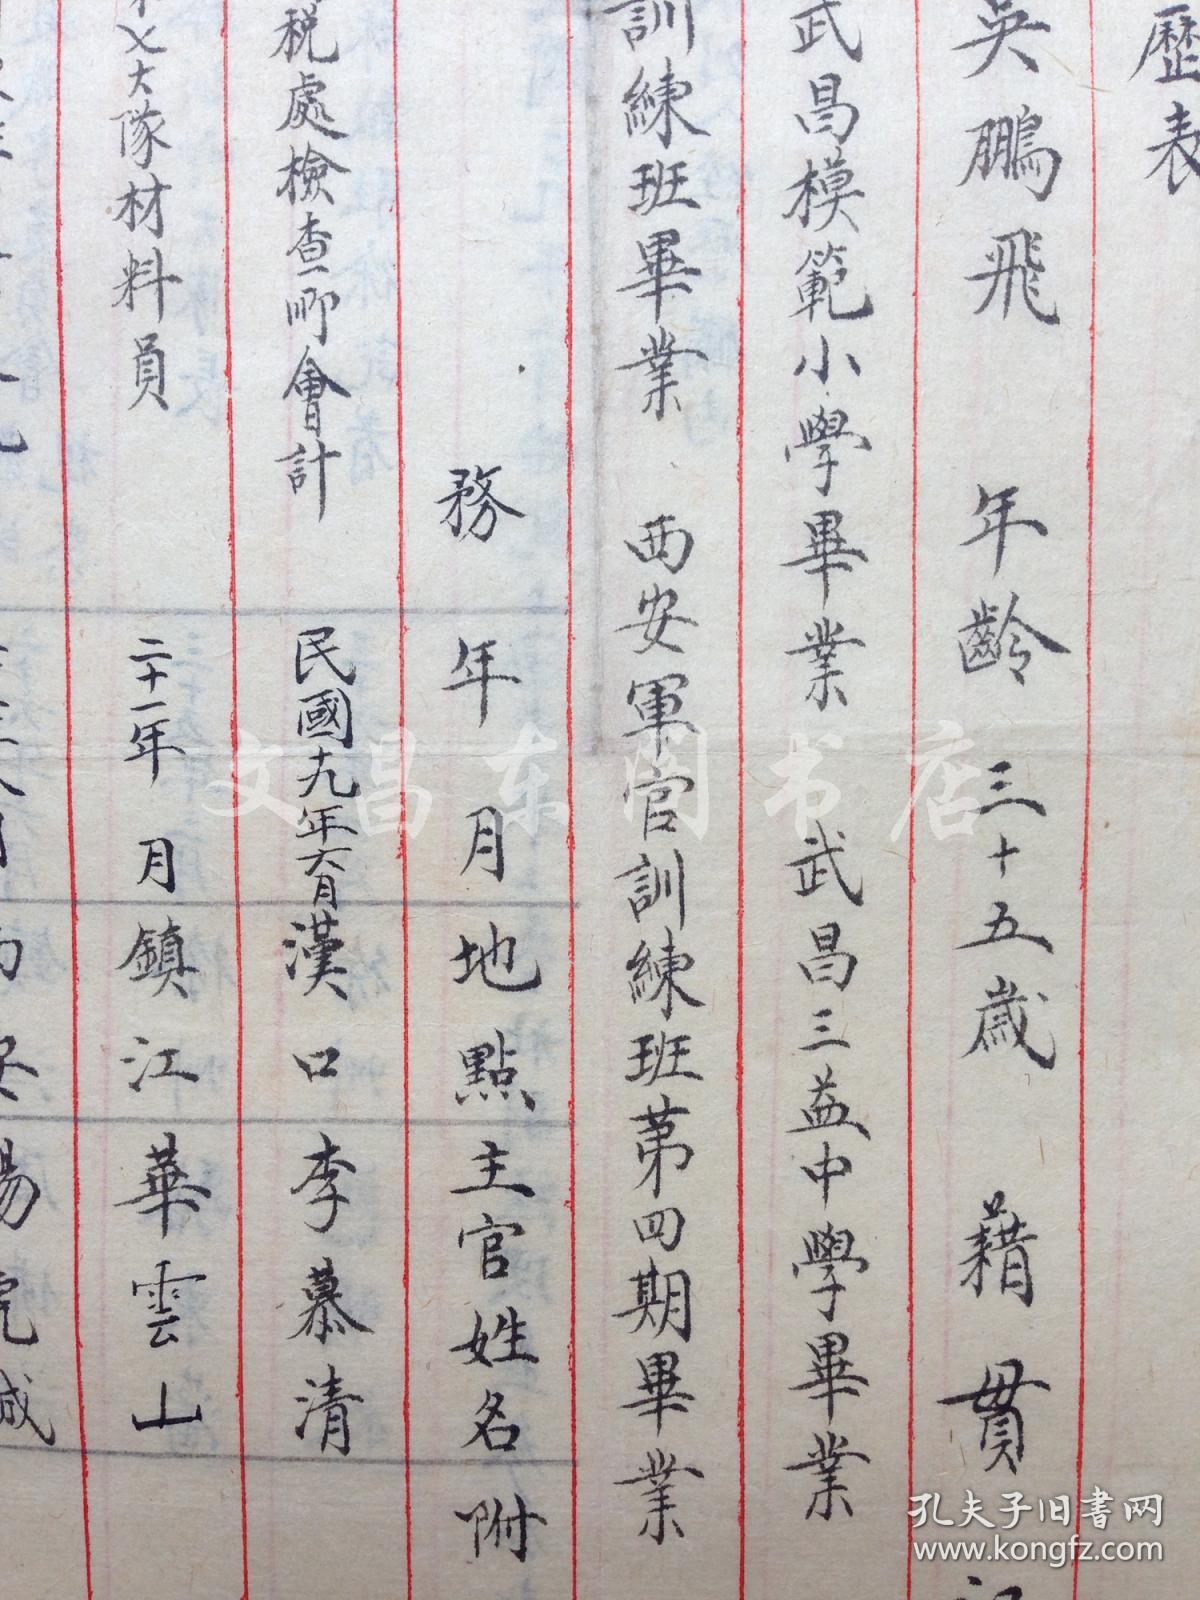 歷表
吳鵬飛 年齡 三十五歲 藉貫
武昌模範小學畢業 武昌三益中學畢業
訓練班畢業 西安軍官訓練班第四期畢業
務 年月 地點 主官姓名 附
稅處檢查所會計 民國十九年六月 漢口 李慕清
大隊材料員 二十一年 月 鎮江 華雲山
文昌东阁书店
孔夫子旧书网
www.kongfz.com